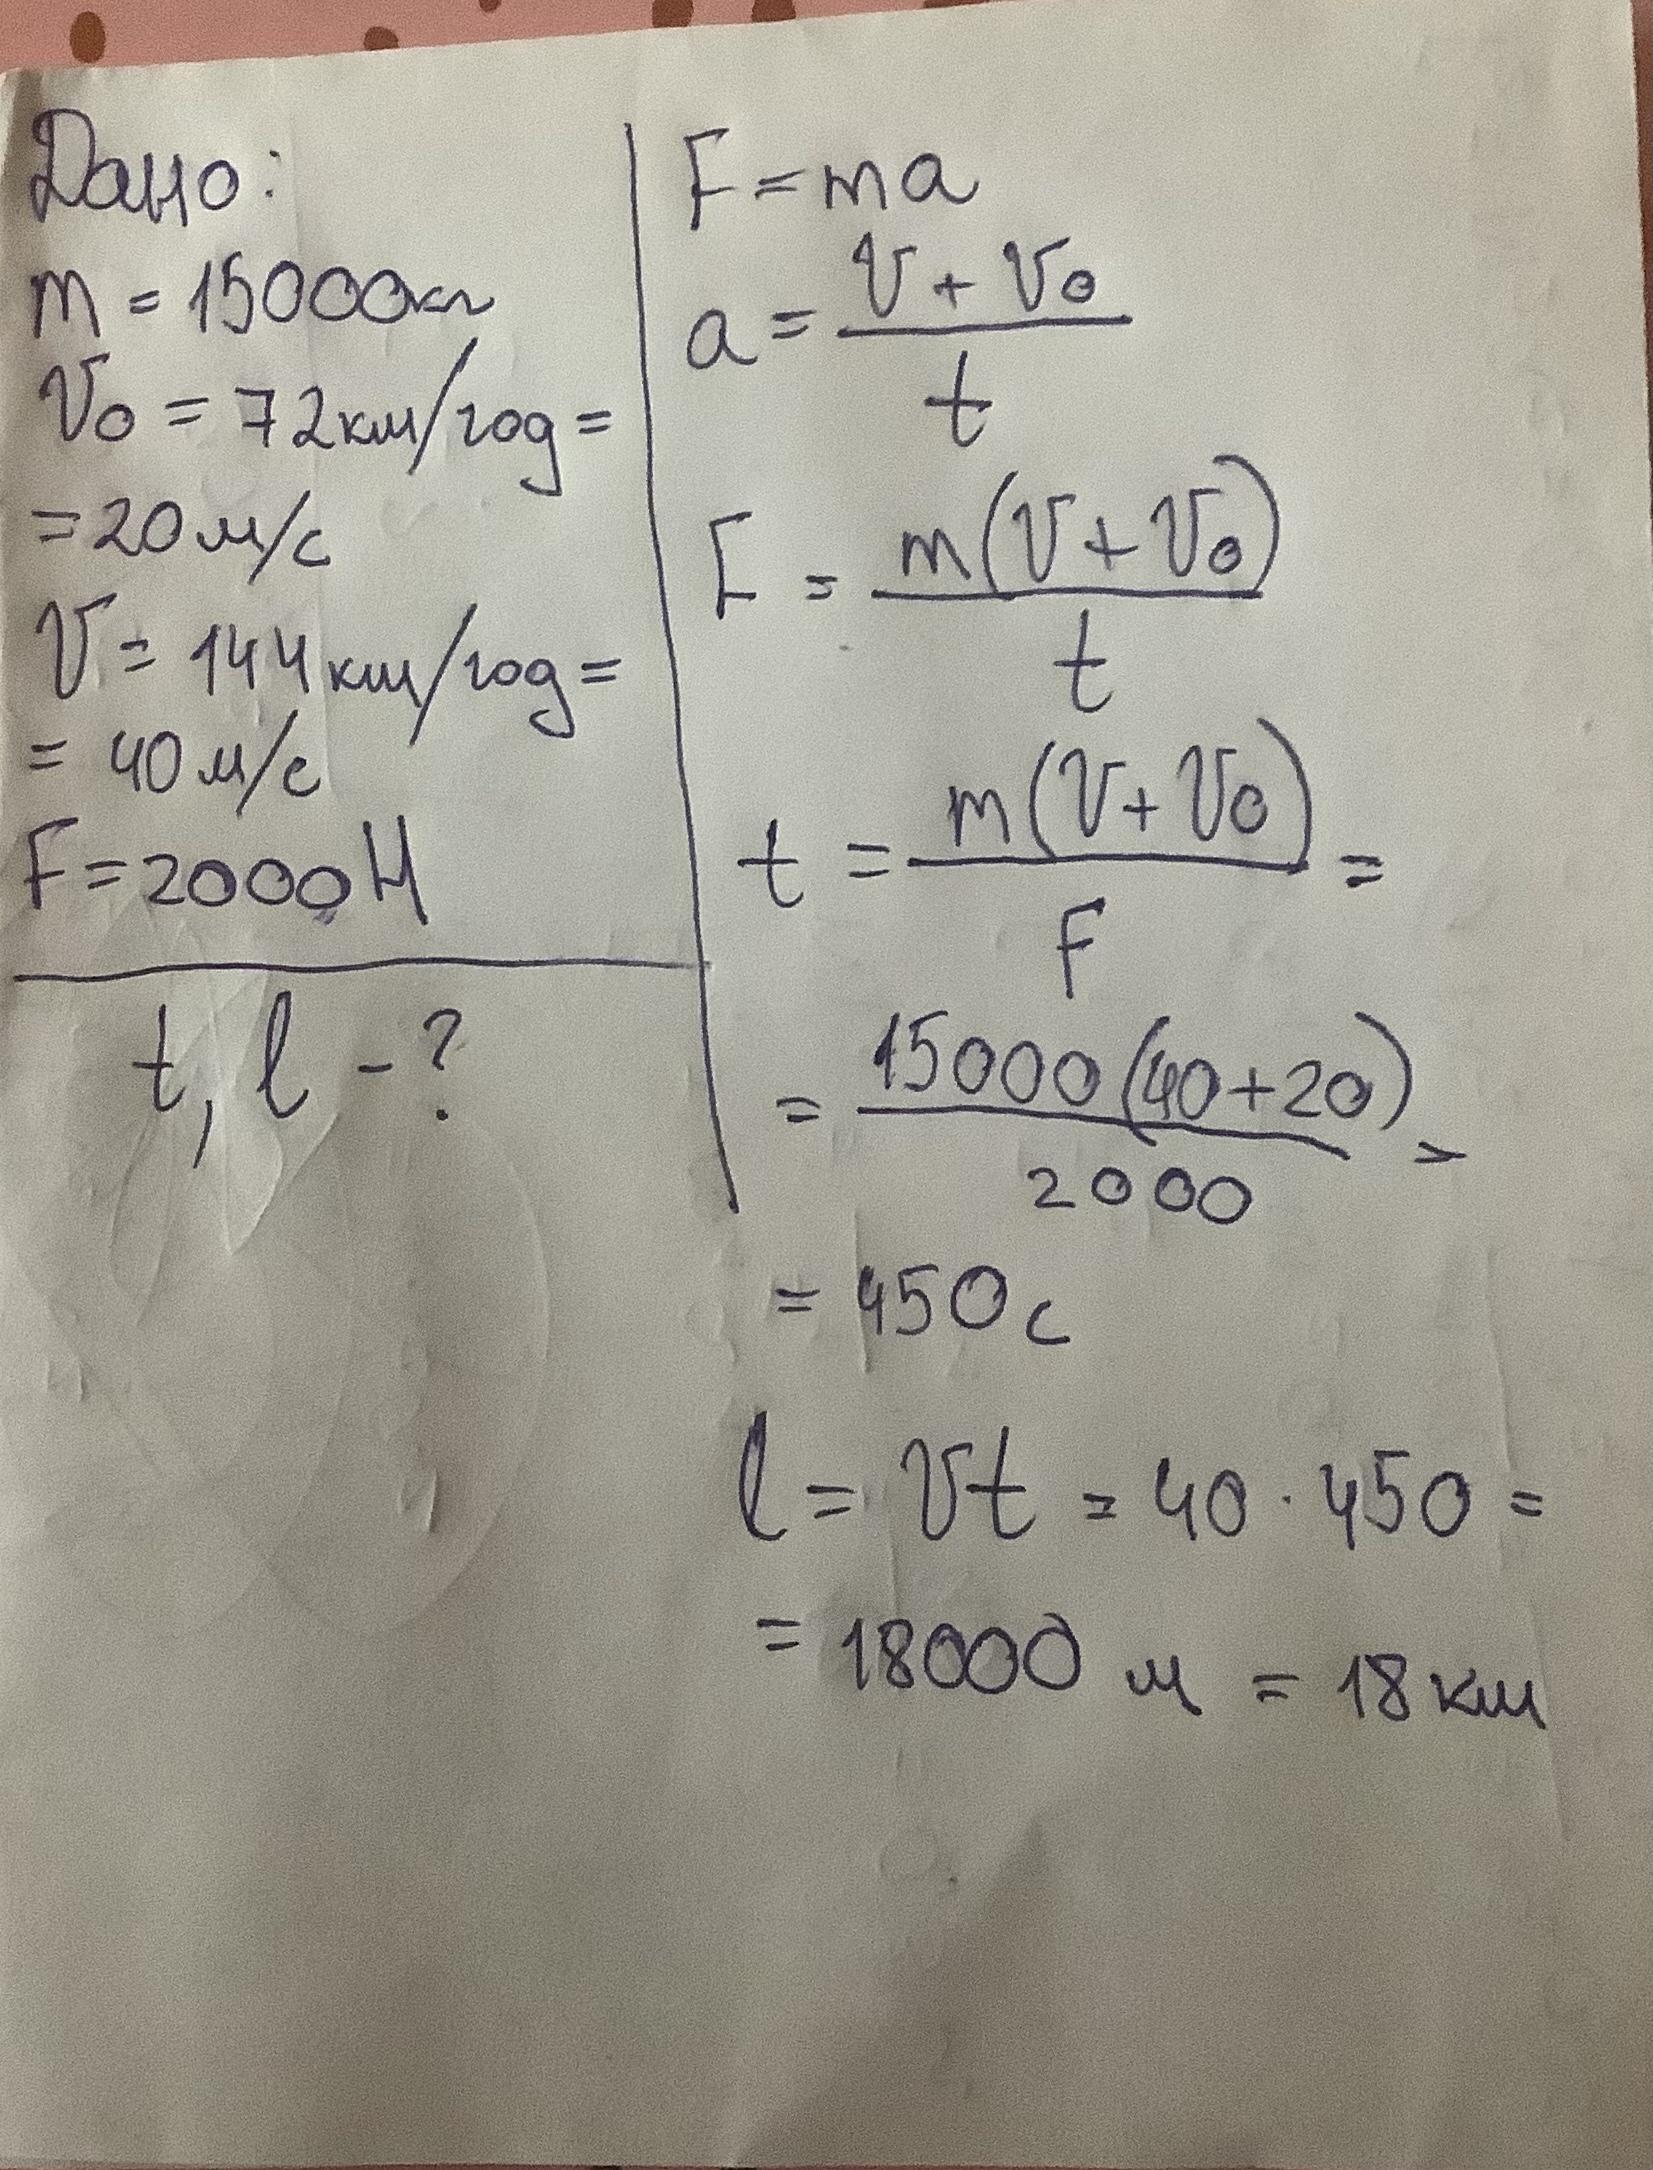 Дано:
m = 15000кг
V₀ = 72км/год =
= 20 м/с
V = 144км/год =
= 40 м/с
F = 2000 Н
t, l - ?
F = ma
a = (V + V₀) / t
F = m(V + V₀) / t
t = m(V + V₀) / F =
= 15000(40+20) / 2000 =
= 450 с
l = Vt = 40 · 450 =
= 18000 м = 18 км